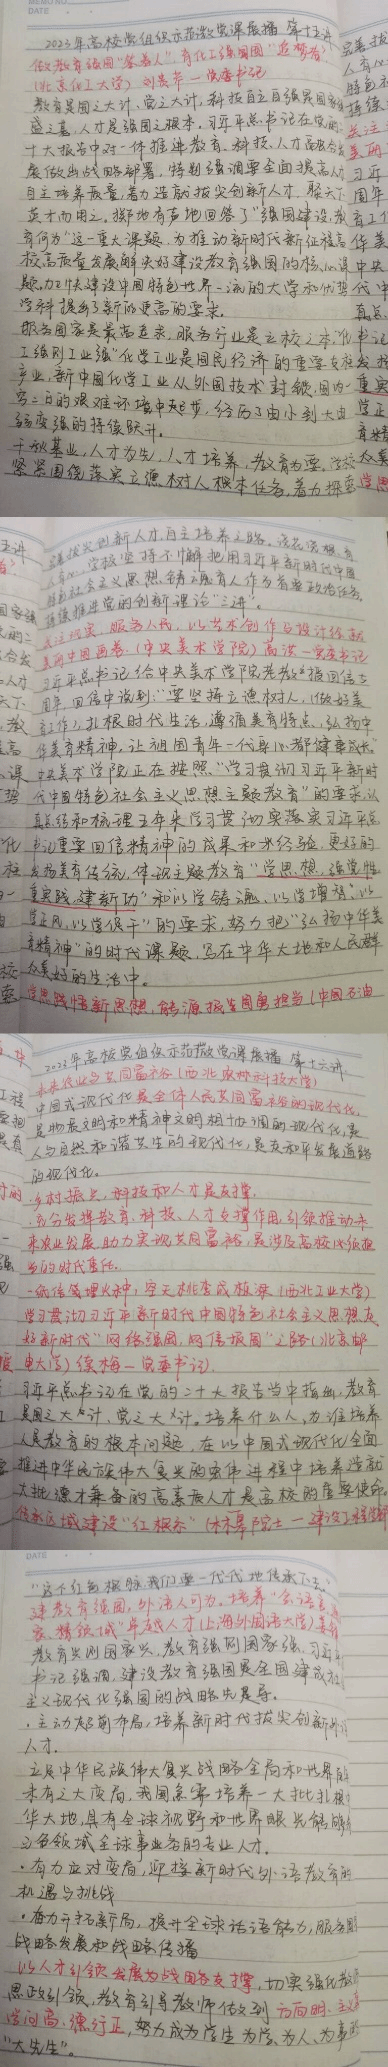 2023年高校党组织示范微党课展播 第十五讲
做教育强国"答卷人",育化工强国圆"追梦者"
(北京化工大学) 一党委书记
教育是国之大计、党之大计,科技自立自强是国家强
盛之基,人才是强国之根本。习近平总书记在党的二
十大报告中对一体推进教育、科技、人才高质量发
展做出战略部署,特别强调要全面提高人才
自主培养质量,着力造就拔尖创新人才,聚天下
英才而用之。掷地有声地回答了"强国建设,教
育何为"这一重大课题,为推动新时代新征程高
校高质量发展解决好建设教育强国的核心课
题,加快建设中国特色世界一流的大学和优势
学科提出了新的更高的要求。
服务国家是最高追求,服务行业是立校之本,"化
工强则工业强"化学工业是国民经济的重要支柱
产业,新中国化学工业从外国技术封锁,国内一
穷二白的艰难环境中起步,经历了由小到大由
弱变强的持续跃升。
千秋基业,人才为先,人才培养,教育为要,学校
紧紧围绕落实立德树人根本任务,着力探索
完善拔尖创新人才自主培养之路。
学校坚持不懈把用习近平新时代中国
特色社会主义思想铸魂育人作为首要政治任务,
持续推进党的创新理论"三进"。
关注现实,服务人民,以艺术创作与设计绘就
美丽中国画卷(中央美术学院) 高洪一党委书记
习近平总书记给中央美术学院老教授回信五
周年,回信中谈到:"要坚持立德树人,(做好美
育工作),扎根时代生活,遵循美育特点,弘扬中
华美育精神,让祖国青年一代身心都健康成长"
中央美术学院正在按照"学习贯彻习近平新时
代中国特色社会主义思想主题教育"的要求,认
真总结和梳理五年来学习贯彻实落实习近平总
书记重要回信精神的成果和经验,更好的
发扬美育传统,体现主题教育"学思想,强党性
重实践,建新功"和"以学铸魂,以学增智,以
学正风,以学促干"的要求,努力把"弘扬中华美
育精神"的时代课题,写在中华大地和人民群
众美好的生活中。
学思践悟新思想,能源报国勇担当(中国石油
2023年高校党组织示范微党课展播 第十六讲
未来农业与共同富裕(西北农林科技大学)
中国式现代化是全体人民共同富裕的现代化,
是物质文明和精神文明相协调的现代化,是
人与自然和谐共生的现代化,是走和平发展道路
的现代化。
·乡村振兴,科技和人才是支撑,
·充分发挥教育、科技、人才支撑作用,引领推动未
来农业发展,助力实现共同富裕,是涉及高校必须担
当的时代责任。
(西北工业大学)
学习贯彻习近平新时代中国特色社会主义思想走
好新时代"网络强国,网信报国"之路(北京邮
电大学) 徐梅一党委书记)
习近平总书记在党的二十大报告当中指出,教育
是国之大计,党之大计,培养什么人,为谁培养
人是教育的根本问题,在以中国式现代化全面
推进中华民族伟大复兴的宏伟进程中培养造就
大批德才兼备的高素质人才是高校的重要使命。
传承区域建设"红根系"
"这个红色根脉我们要一代代地传承下去。"
建教育强国,外语人可为,培养"会语言、
家、精领域"年轻人才(上海外国语大学)姜锋
教育兴则国家兴,教育强则国家强,习近平
书记强调,建设教育强国是全国建成社
主义现代化强国的战略先导。
·主动超前布局,培养新时代拔尖创新外语
人才。
立足中华民族伟大复兴战略全局和世界百
未有之大变局,我国急需培养一大批扎根中
华大地,具有全球视野和世界眼光能够
各领域全球事业务的专业人才。
·有力应对变局,迎接新时代外语教育的
机遇与挑战
·奋力开拓新局,提升全球话语能力,服务国
战略发展和战略传播
以人才引领发展为战略支撑,切实强化教师
思政引领,教育引导教师做到方向明、主义
学问高、德行正,努力成为学生为学、为人、为事的
"大先生"。